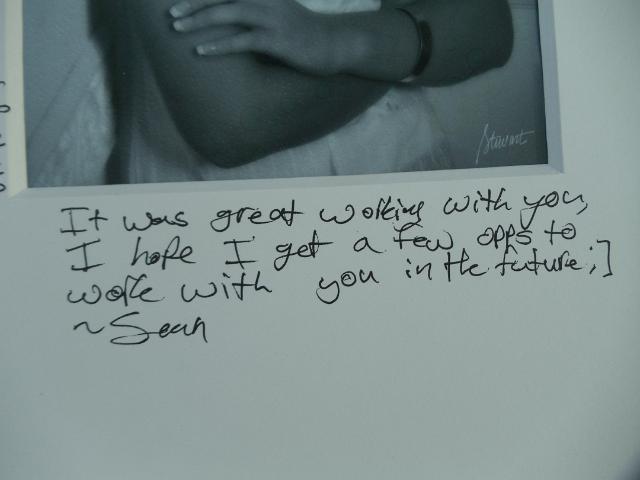 Stewart
It was great working with you,
I hope I get a few opps to
work with you in the future;]
~Sean